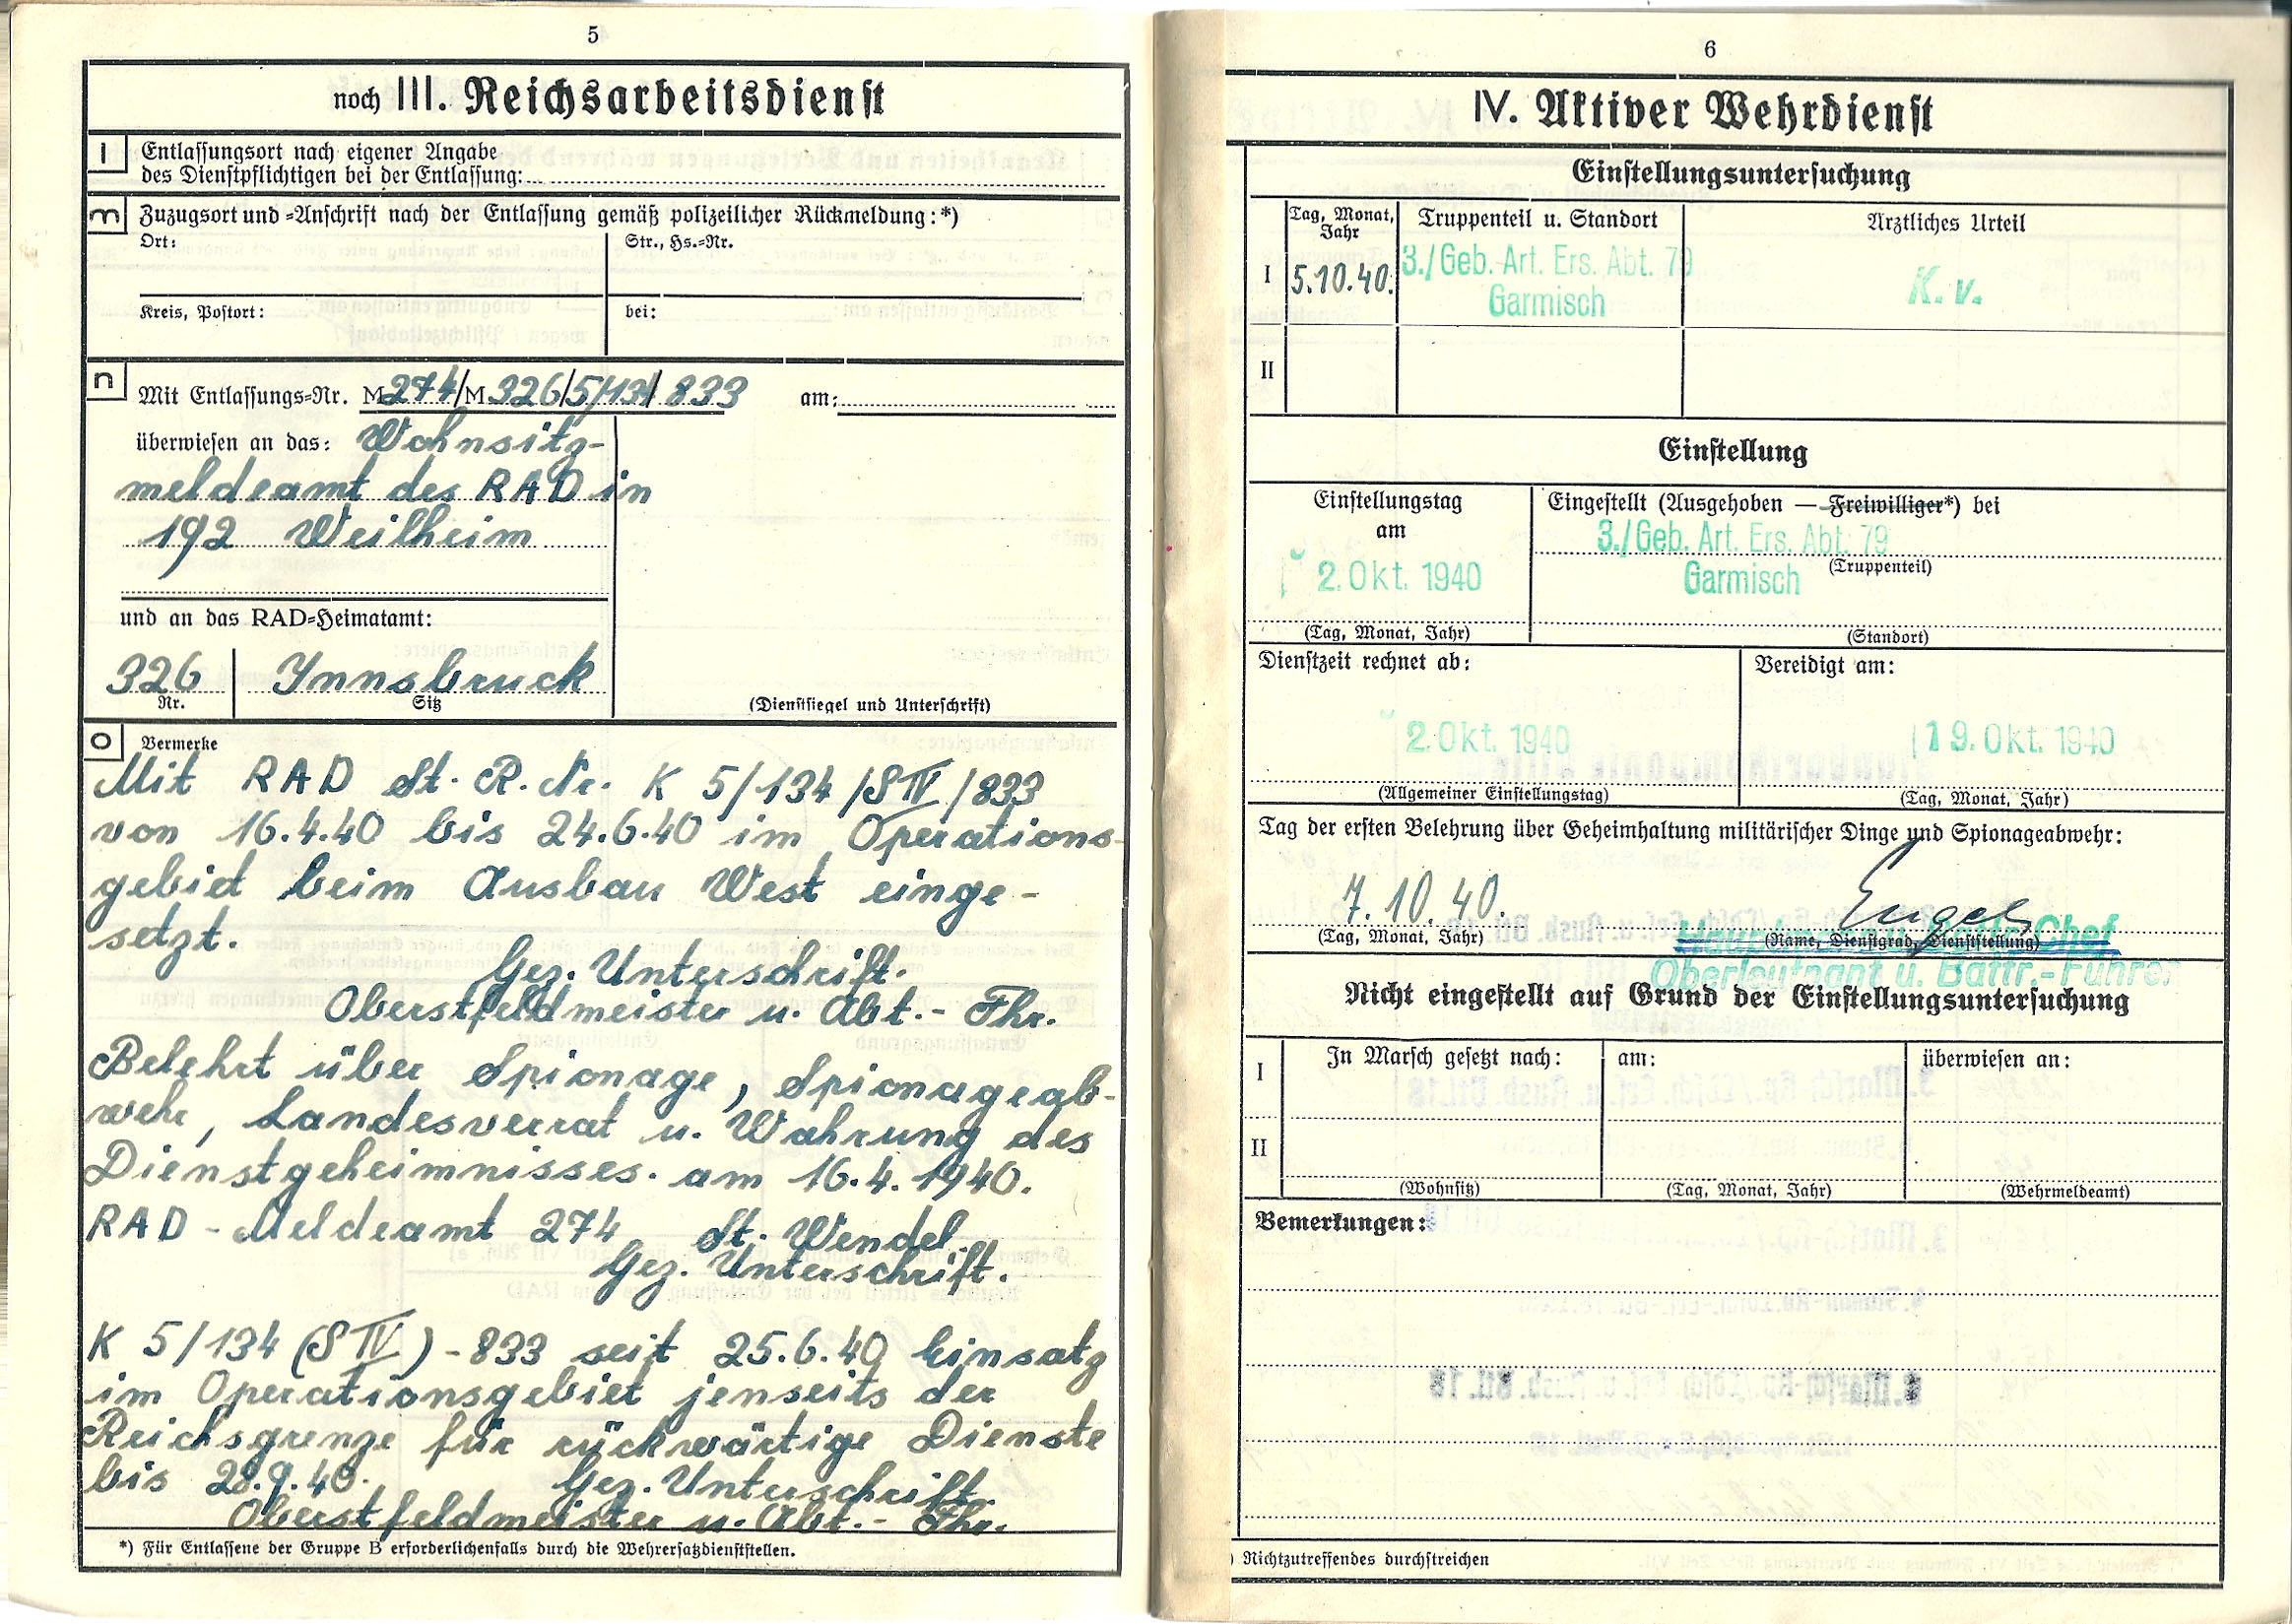 5
noch III. Reichsarbeitsdienst
l Entlassungsort nach eigener Angabe
des Dienstpflichtigen bei der Entlassung:
m Zuzugsort und =Anschrift nach der Entlassung gemäß polizeilicher Rückmeldung:*)
Ort: Str., Hs.=Nr.
Kreis, Postort: bei:
n Mit Entlassungs=Nr. M274/M326/5/134/833 am:
überwiesen an das: Wohnsitz-
meldeamt des RAD in
192 Weilheim
und an das RAD=Heimatamt:
326 Innsbruck
Nr. Sitz (Dienstsiegel und Unterschrift)
o Vermerke
Mit RAD St. R. Nr. K 5/134/S IV/833
von 16.4.40 bis 24.6.40 im Operations-
gebiet beim Ausbau West einge-
setzt.
Gez. Unterschrift.
Oberstfeldmeister u. Abt.- Fhr.
Belehrt über Spionage, Spionageab-
wehr, Landesverrat u. Wahrung des
Dienstgeheimnisses. am 16.4.1940.
RAD-Meldeamt 274 St. Wendel.
Gez. Unterschrift.
K 5/134 (S IV)-833 seit 25.6.40 Einsatz
im Operationsgebiet jenseits der
Reichsgrenze für rückwärtige Dienste
bis 28.9.40. Gez. Unterschrift.
Oberstfeldmeister u. Abt.- Fhr.
*) Für Entlassene der Gruppe B erforderlichenfalls durch die Wehrersatzdienststellen.
6
IV. Aktiver Wehrdienst
Einstellungsuntersuchung
Tag, Monat, Jahr Truppenteil u. Standort Ärztliches Urteil
I 5.10.40. 3./Geb. Art. Ers. Abt. 79 K. v.
Garmisch
II
Einstellung
Einstellungstag Eingestellt (Ausgehoben — Freiwilliger*) bei
am 3./Geb. Art. Ers. Abt. 79
(Truppenteil)
2. Okt. 1940 Garmisch
(Tag, Monat, Jahr) (Standort)
Dienstzeit rechnet ab: Vereidigt am:
2. Okt. 1940 19. Okt. 1940
(Allgemeiner Einstellungstag) (Tag, Monat, Jahr)
Tag der ersten Belehrung über Geheimhaltung militärischer Dinge und Spionageabwehr:
7. 10. 40. Engel
Hauptmann u. Battr. Chef
(Tag, Monat, Jahr) (Name, Dienstgrad, Dienststellung)
Oberleutnant u. Battr.-Führer
Nicht eingestellt auf Grund der Einstellungsuntersuchung
I In Marsch gesetzt nach: am: überwiesen an:
II
(Wohnsitz) (Tag, Monat, Jahr) (Wehrmeldeamt)
Bemerkungen:
) Nichtzutreffendes durchstreichen